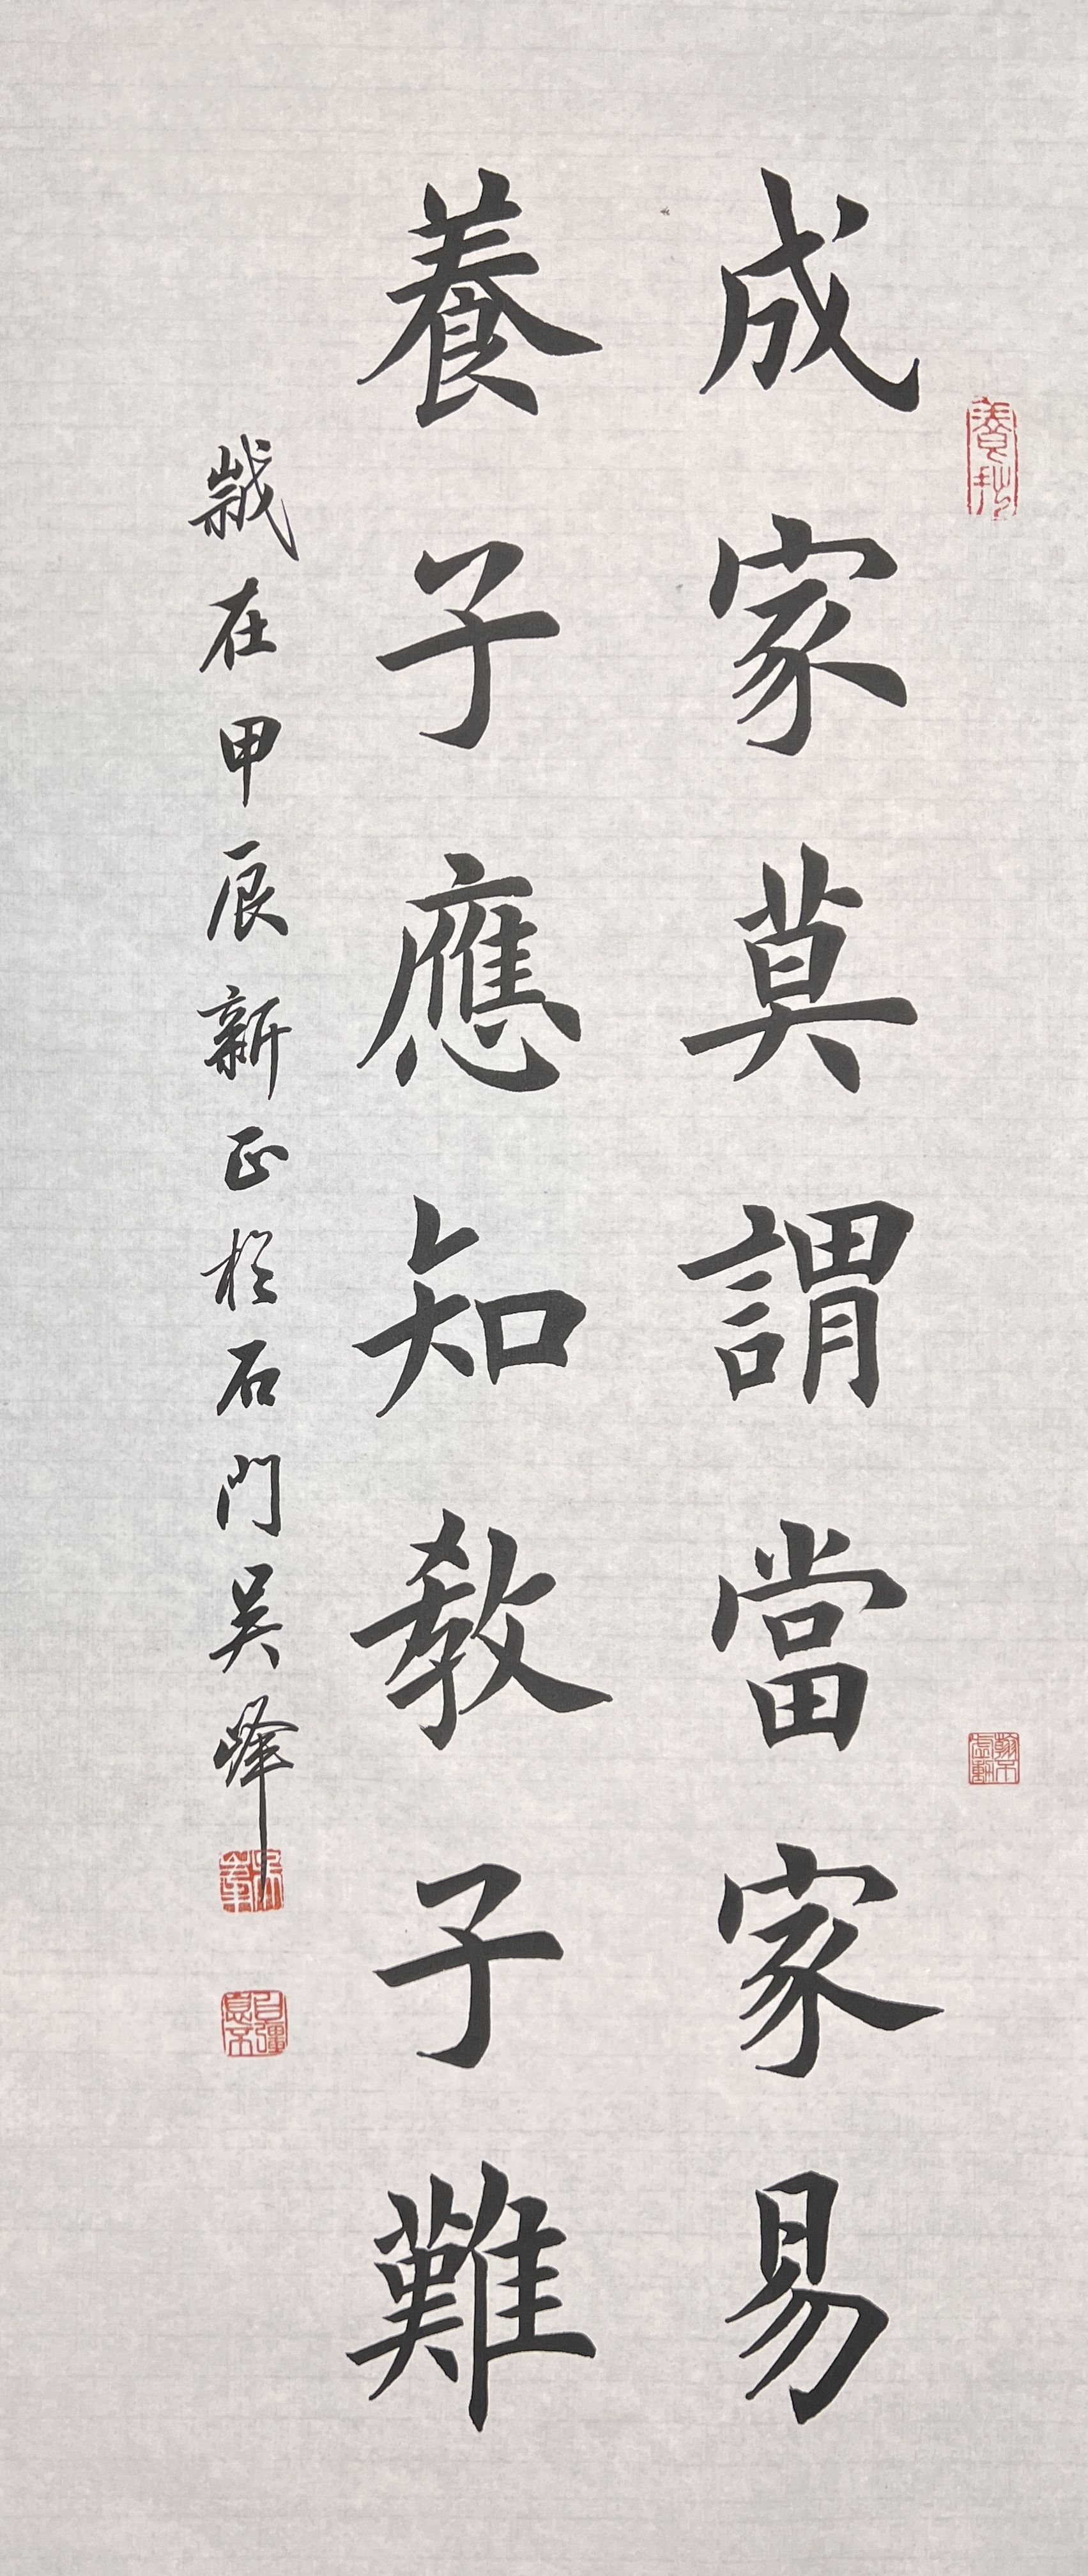 成家莫謂當家易
養子應知教子難
歲在甲辰新正於石門吳峰
養拙